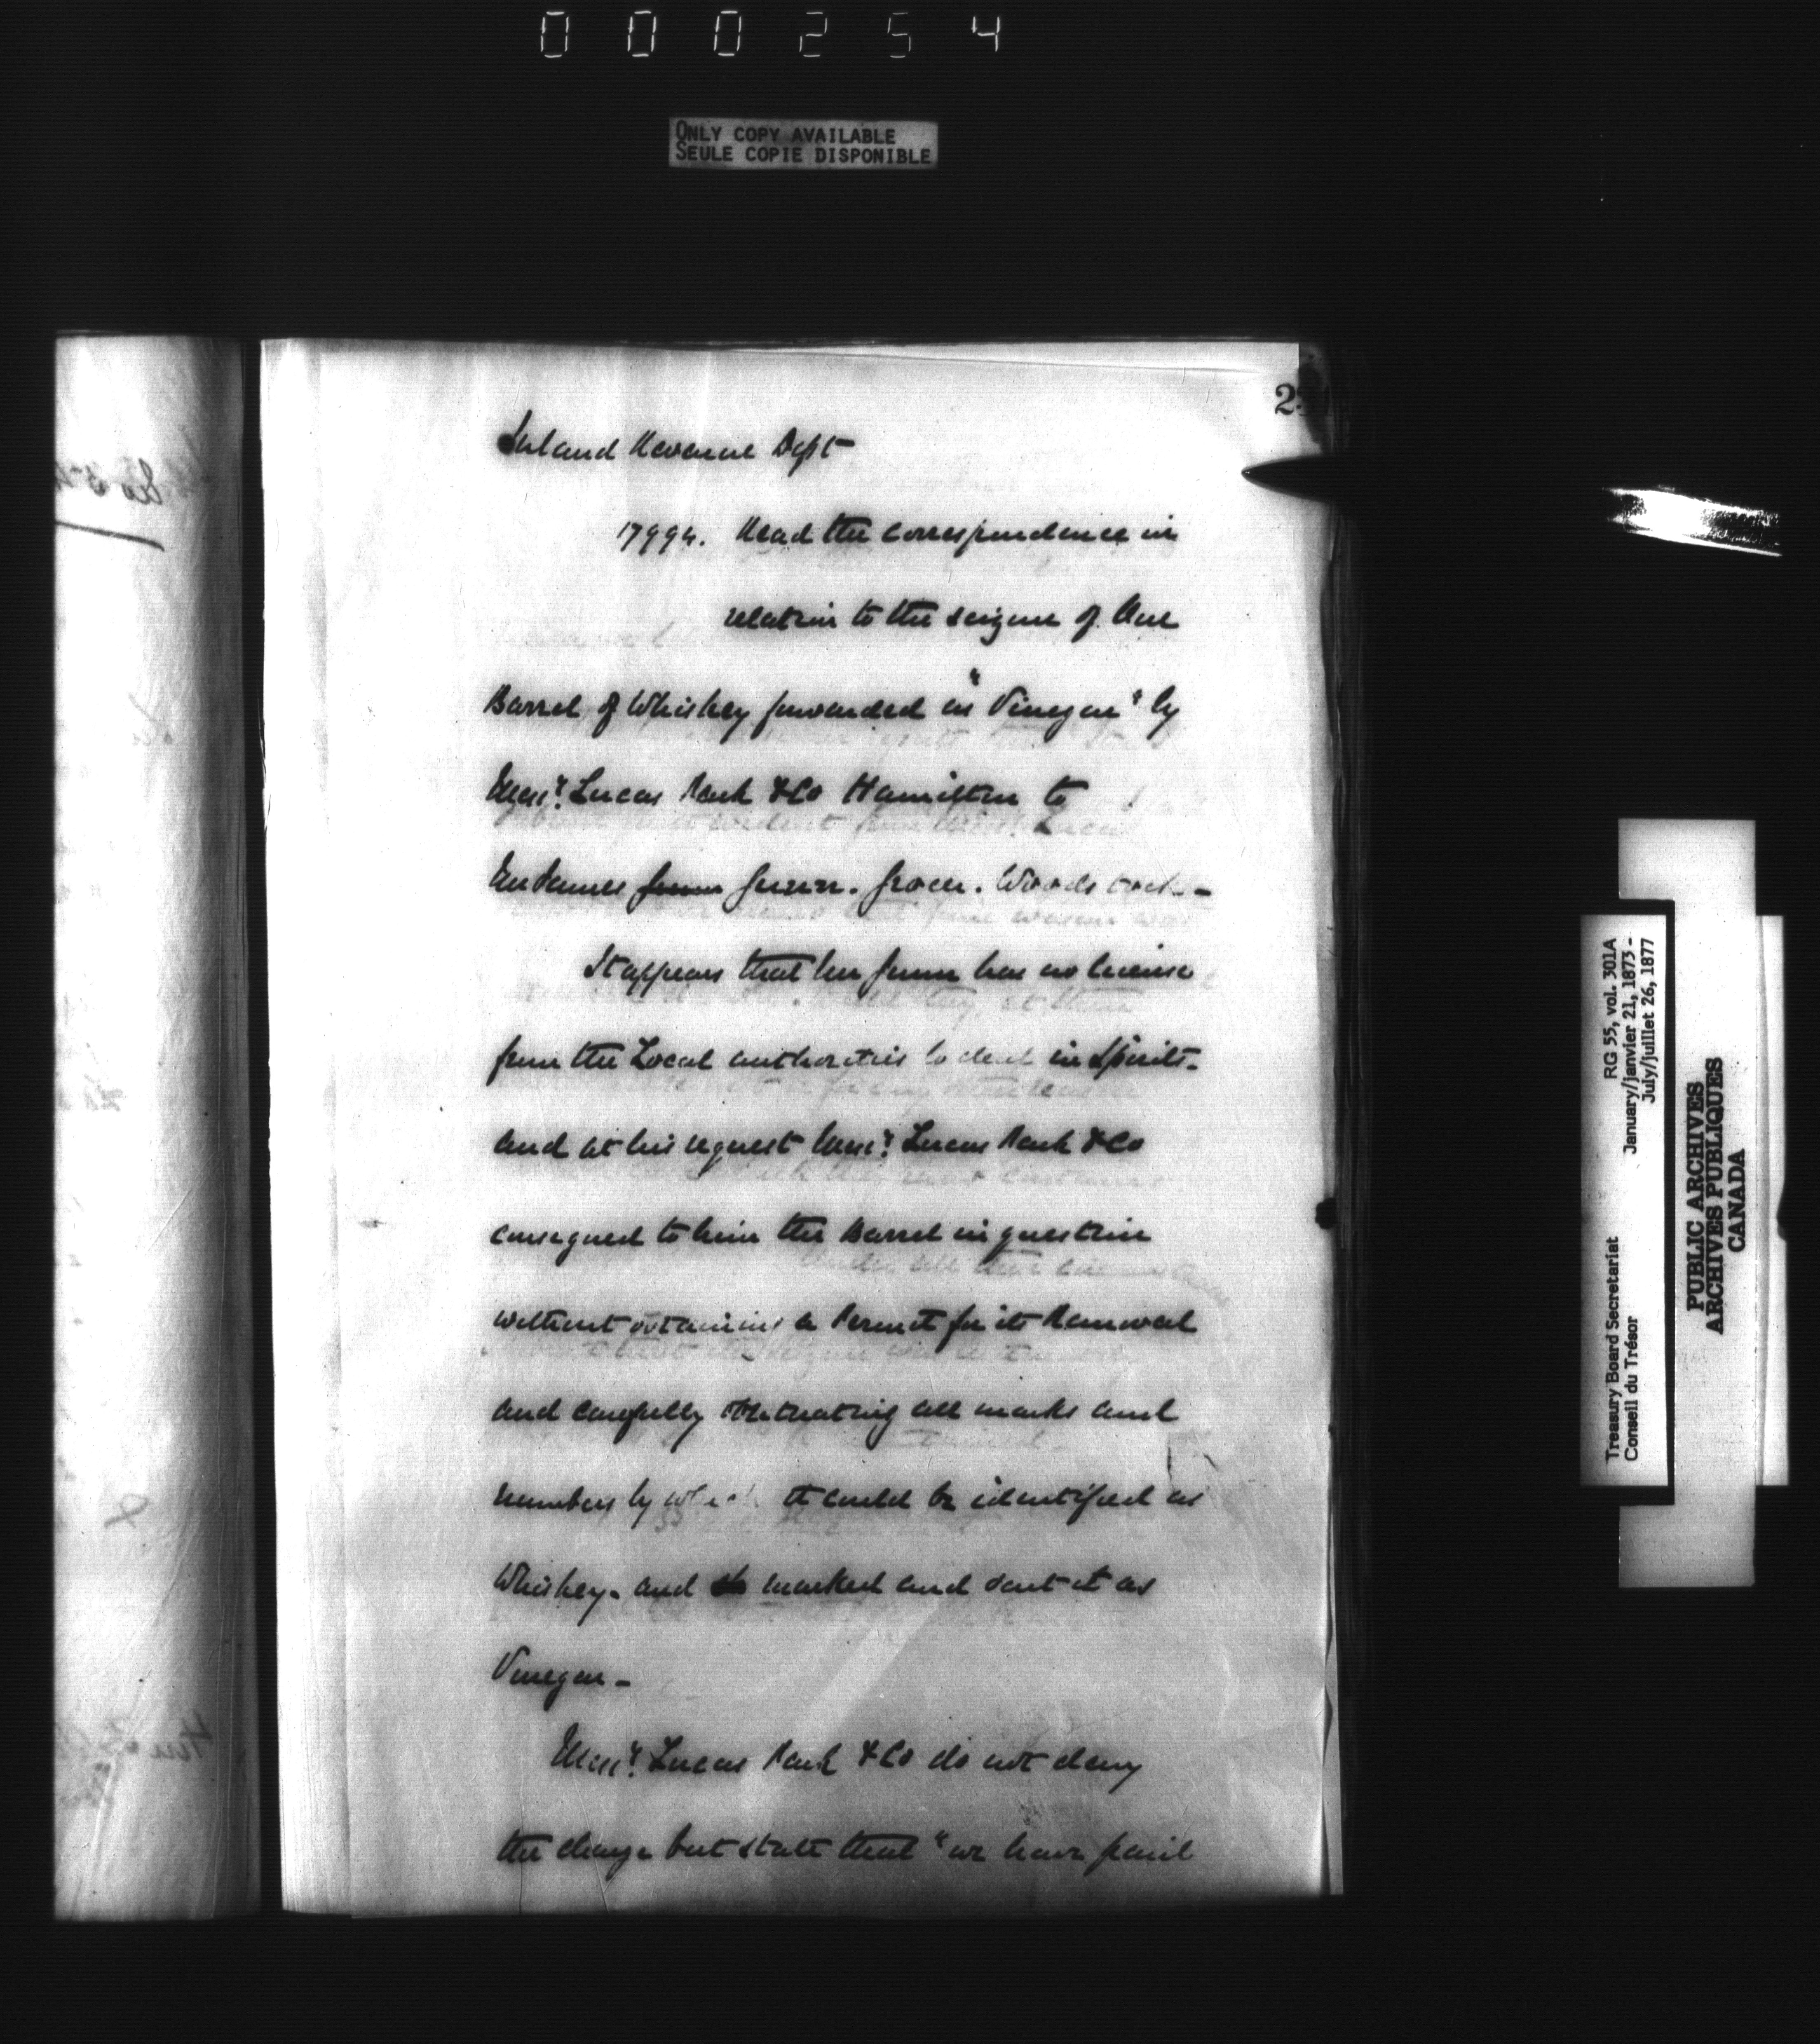 000254
ONLY COPY AVAILABLE
SEULE COPIE DISPONIBLE
Inland Revenue Dept
17994. Read the correspondence in
relation to the seizure of One
Barrel of Whiskey forwarded as "Vinegar" by
Messrs. Lucas Park & Co Hamilton to
James Grocer. Woodstock -
It appears that has no license
from the Local authorities to deal in Spirits -
and at his request Messrs. Lucas Park & Co
consigned to him the Barrel in question
without obtaining a Permit for its Removal
and carefully obliterating all marks and
numbers by which it could be identified as
Whiskey - and marked and sent it as
Vinegar -
Messrs. Lucas Park & Co do not deny
the charge but state that "we have paid
Treasury Board Secretariat RG 55, vol. 301A
Conseil du Trésor January/janvier 21, 1873 -
July/juillet 26, 1877
PUBLIC ARCHIVES
ARCHIVES PUBLIQUES
CANADA